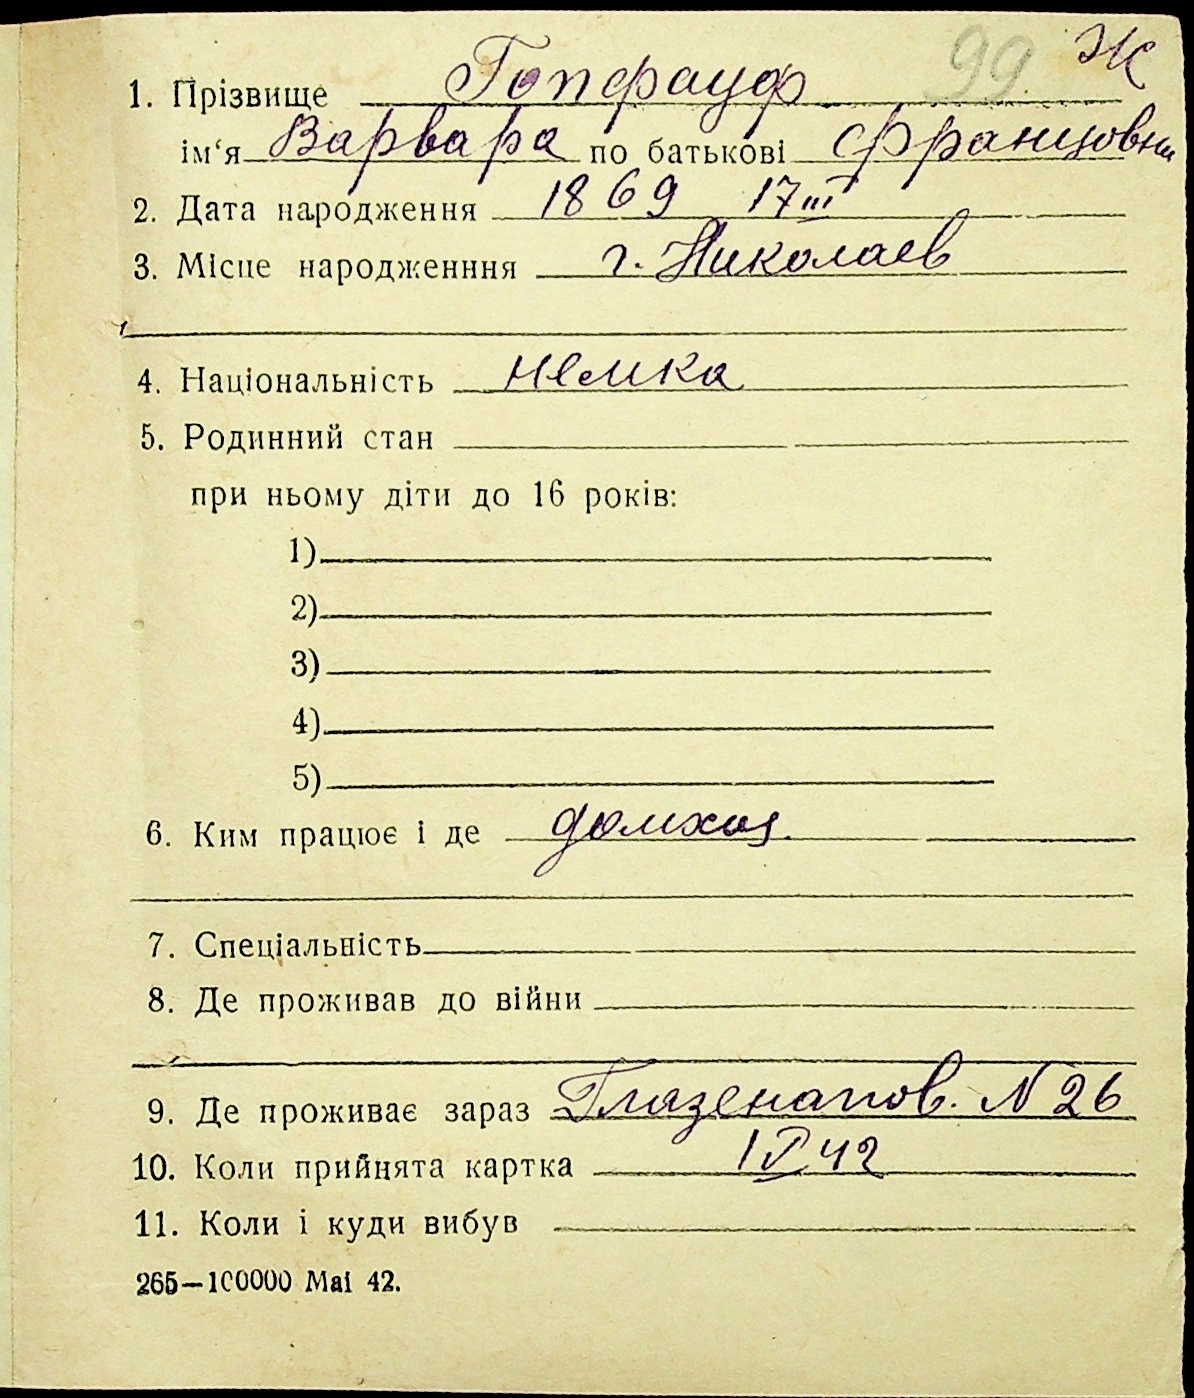 99 Ж
1. Прізвище Гопфауф
ім‘я Варвара по батькові Францовна
2. Дата народження 1869 17 III
3. Місце народженння г. Николаев
4. Національність немка
5. Родинний стан
при ньому діти до 16 років:
1)
2)
3)
4)
5)
6. Ким працює і де домхоз.
7. Спеціальність
8. Де проживав до війни
9. Де проживає зараз Глазенапов. N 26
10. Коли прийнята картка 1 V 42
11. Коли і куди вибув
265—100000 Mai 42.